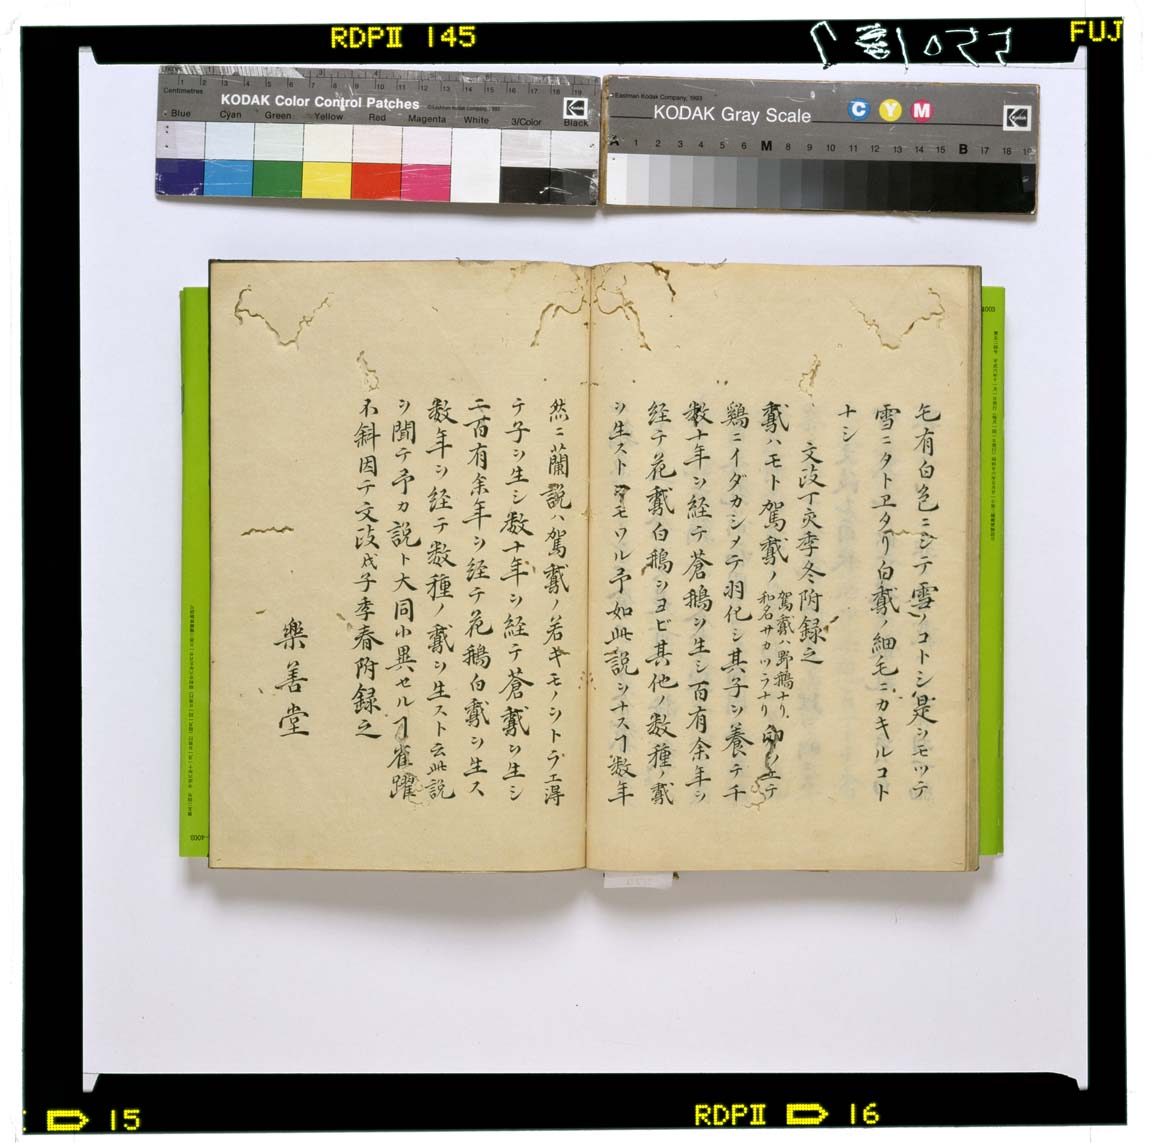 RDPⅡ 145
FUJ
KODAK Color Control Patches
©Eastman Kodak Company, 1993
Centimetres
Blue Cyan Green Yellow Red Magenta White 3/Color Black
Eastman Kodak Company, 1993
KODAK Gray Scale
C Y M
Kodak
A 1 2 3 4 5 6 M 8 9 10 11 12 13 14 15 B 17 18 19
毛有白色ニシテ雪ノコトシ是ヲモツテ
雪ニタトヱタリ白鵞ノ細毛ニカキルコト
ナシ
文政丁亥季冬附録之
鵞ハモト駕鵞ノ
駕鵞ハ野鵝ナリ
和名サカツラナリ
卵ヲエテ
鶏ニイダカシメテ羽化シ其子ヲ養テ千
数十年ヲ経テ蒼鵝ヲ生シ百有余年ヲ
経テ花鵞白鵝ヲヨビ其他ノ数種ノ鵞
ヲ生ストヲモワル予如此説ヲナスヿ数年
然ニ蘭説ハ駕鵞ノ若キモノヲトラエ得
テ子ヲ生シ数十年ヲ経テ蒼鵞ヲ生シ
二百有余年ヲ経テ花鵝白鵞ヲ生ス
数年ヲ経テ数種ノ鵞ヲ生スト云此説
ヲ聞テ予カ説ト大同小異セルヿ雀躍
不斜因テ文政戊子季春附録之
樂善堂
15
RDPⅡ 16